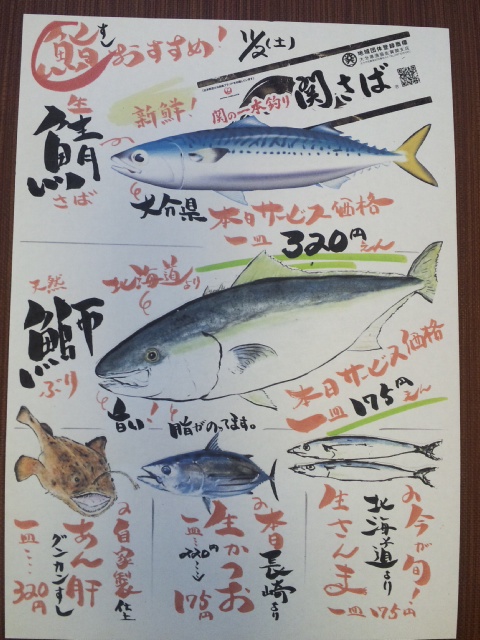 鮨
すし
おすすめ！ 11/2(土)
地域団体登録商標
関さば
関の一本釣り
新鮮！
生
鯖
さば
大分県
本日サービス価格
一皿 320円
えん
天然
鰤
ぶり
北海道より
旨い！
脂がのってます。
本日サービス価格
一皿 175円
えん
の自家製仕立
あん肝
グンカンすし
一皿… 320円
の本日長崎より
生かつお
一皿… 220円
175円
の今が旬！
北海道より
生さんま
一皿 175円